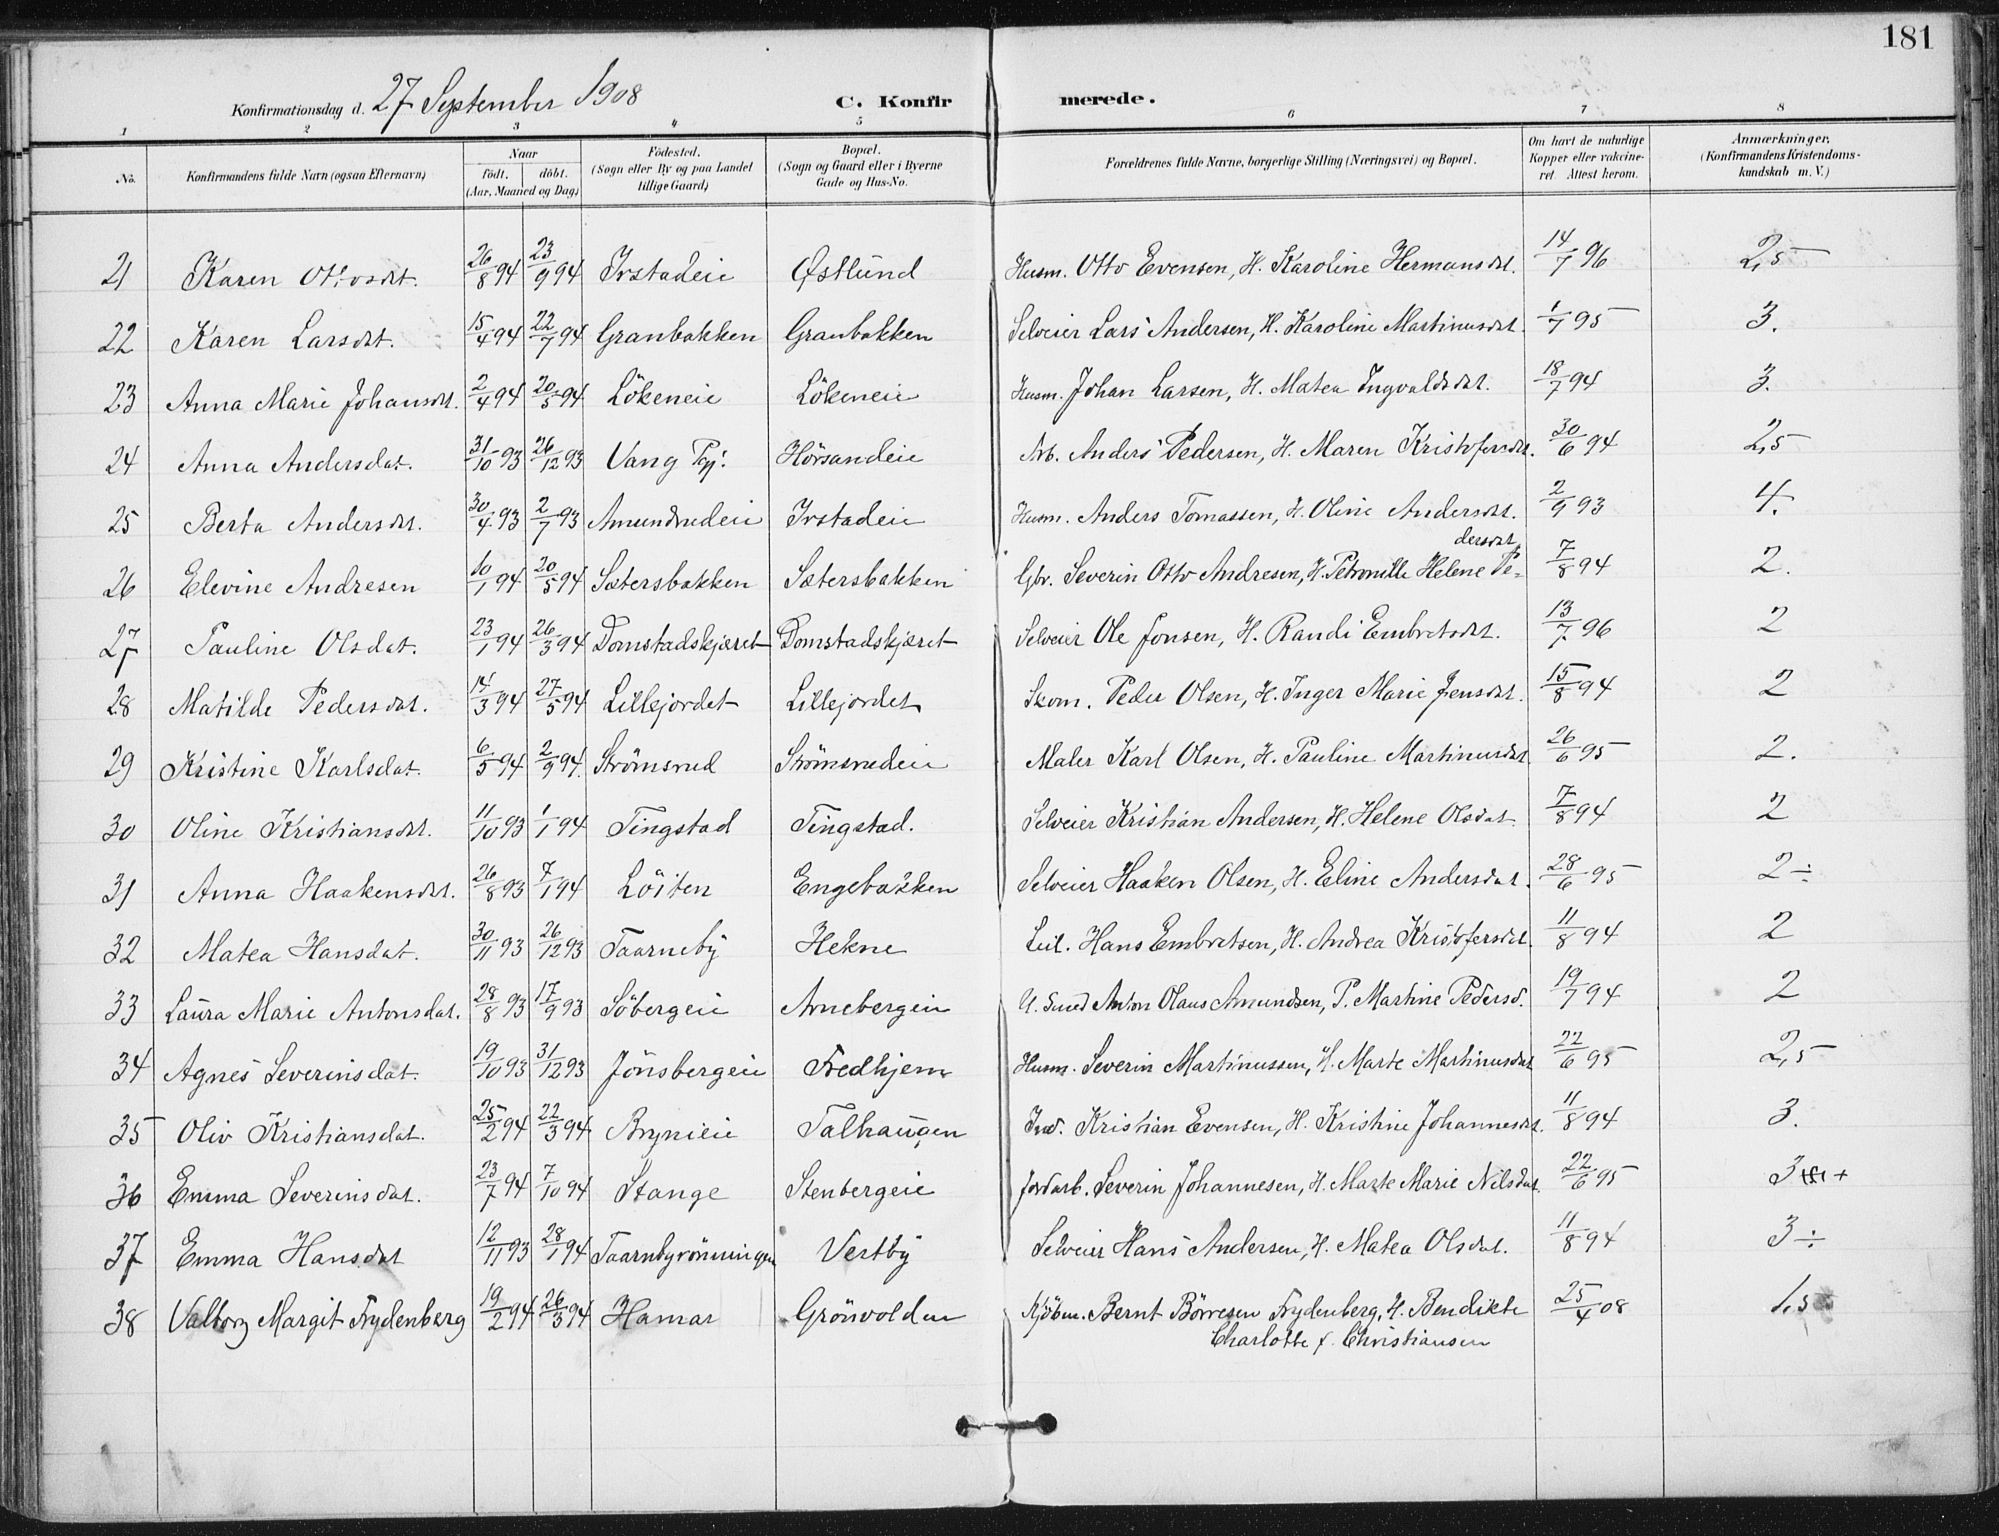 181
Konfirmationsdag d. 27 September 1908 C. Konfirmerede.
1 2 3 4 5 6 7 8
No. Konfirmandens fulde Navn (ogsaa Efternavn) Naar født. døbt. (Aar, Maaned og Dag) Fødested. (Sogn eller By og paa Landet tillige Gaard) Bopæl. (Sogn og Gaard eller i Byerne Gade og Hus-No. Forældrenes fulde Navne, borgerlige Stilling (Næringsvei) og Bopæl. Om havt de naturlige Kopper eller vakcineret. Attest herom. Anmærkninger. (Konfirmandens Kristendomskundskab m. V.)
21 Karen Ottosdt. 26/8 94 23/9 94 Irstadeie Østlund Husm. Otto Evensen, H. Karoline Hermansdt. 14/7 96 2,5
22 Karen Larsdt. 15/4 94 22/7 94 Granbakken Granbakken Selveier Lars Andersen, H. Karoline Martinusdt. 1/7 95 3.
23 Anna Marie Johansdt. 2/4 94 20/5 94 Lökeneie Lökeneie Husm. Johan Larsen, H. Matea Ingvaldsdt. 18/7 94 3.
24 Anna Andersdat. 31/10 93 26/12 93 Vang Pgj. Hörsandeie Arb. Anders Pedersen, H. Maren Kristofersdt. 30/6 94 2,5
25 Berta Andersdt. 30/4 93 2/7 93 Amundrudeie Irstadeie Husm. Anders Tomassen, H. Oline Andersdt. 2/9 93 4.
26 Elevine Andresen 10/1 94 20/5 94 Sætersbakken Sætersbakken Gbr. Severin Otto Andresen, H. Petronille Helene Pe=dersdt. 7/8 94 2.
27 Pauline Olsdat. 23/1 94 26/3 94 Domstadskjæret Domstadskjæret Selveier Ole Jonsen, H. Randi Embretsdt. 13/7 96 2
28 Matilde Pedersdat. 14/3 94 27/5 94 Lillejordet Lillejordet Skom. Peder Olsen, H. Inger Marie Jensdt. 15/8 94 2
29 Kristine Karlsdat. 6/5 94 2/9 94 Strömsrud Strömsrudeie Maler Karl Olsen, H. Pauline Martinusdt. 26/6 95 2.
30 Oline Kristiansdt. 11/10 93 1/1 94 Tingstad Tingstad. Selveier Kristian Andersen, H. Helene Olsdat. 7/8 94 2
31 Anna Haakensdt. 26/8 93 7/1 94 Löiten Engebakken Selveier Haaken Olsen, H. Eline Andersdat. 28/6 95 2 ÷
32 Matea Hansdat. 30/11 93 26/12 93 Taarneby Hekne Leil. Hans Embretsen, H. Andrea Kristofersdat. 11/8 94 2
33 Laura Marie Antonsdat. 28/8 93 17/9 93 Söbergeie Arnebergeie U. Smed Anton Olaus Amundsen, P. Martine Pedersd. 19/7 94 2
34 Agnes Severinsdat. 19/10 93 31/12 93 Jönsbergeie Fredhjem Husm. Severin Martinussen, H. Marte Martinusdat 22/6 95 2,5
35 Oliv Kristiansdat. 25/2 94 22/3 94 Brynieie Talhaugen Ind. Kristian Evensen, H. Kristine Johannesdt. 11/8 94 3.
36 Emma Severinsdat. 23/7 94 7/10 94 Stange Stenbergeie Jordarb. Severin Johannesen, H. Marte Marie Nilsdat. 22/6 95 3 +
37 Emma Hansdat 12/11 93 28/1 94 Taarnbyrönningen Vestby Selveier Hans Andersen, H. Matea Olsdat. 11/8 94 3 ÷
38 Valborg Margit Frydenberg 19/2 94 26/3 94 Hamar Grönvolden Kjöbm. Bernt Börresen Frydenberg, H. Bendikte 25/4 08 1,5
Charlotte f. Christiansen